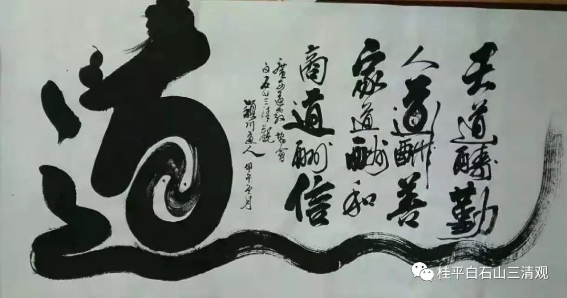 天道酬勤
人道酬善
家道酬和
商道酬信
白石山三清觀
道人
道
桂平白石山三清观